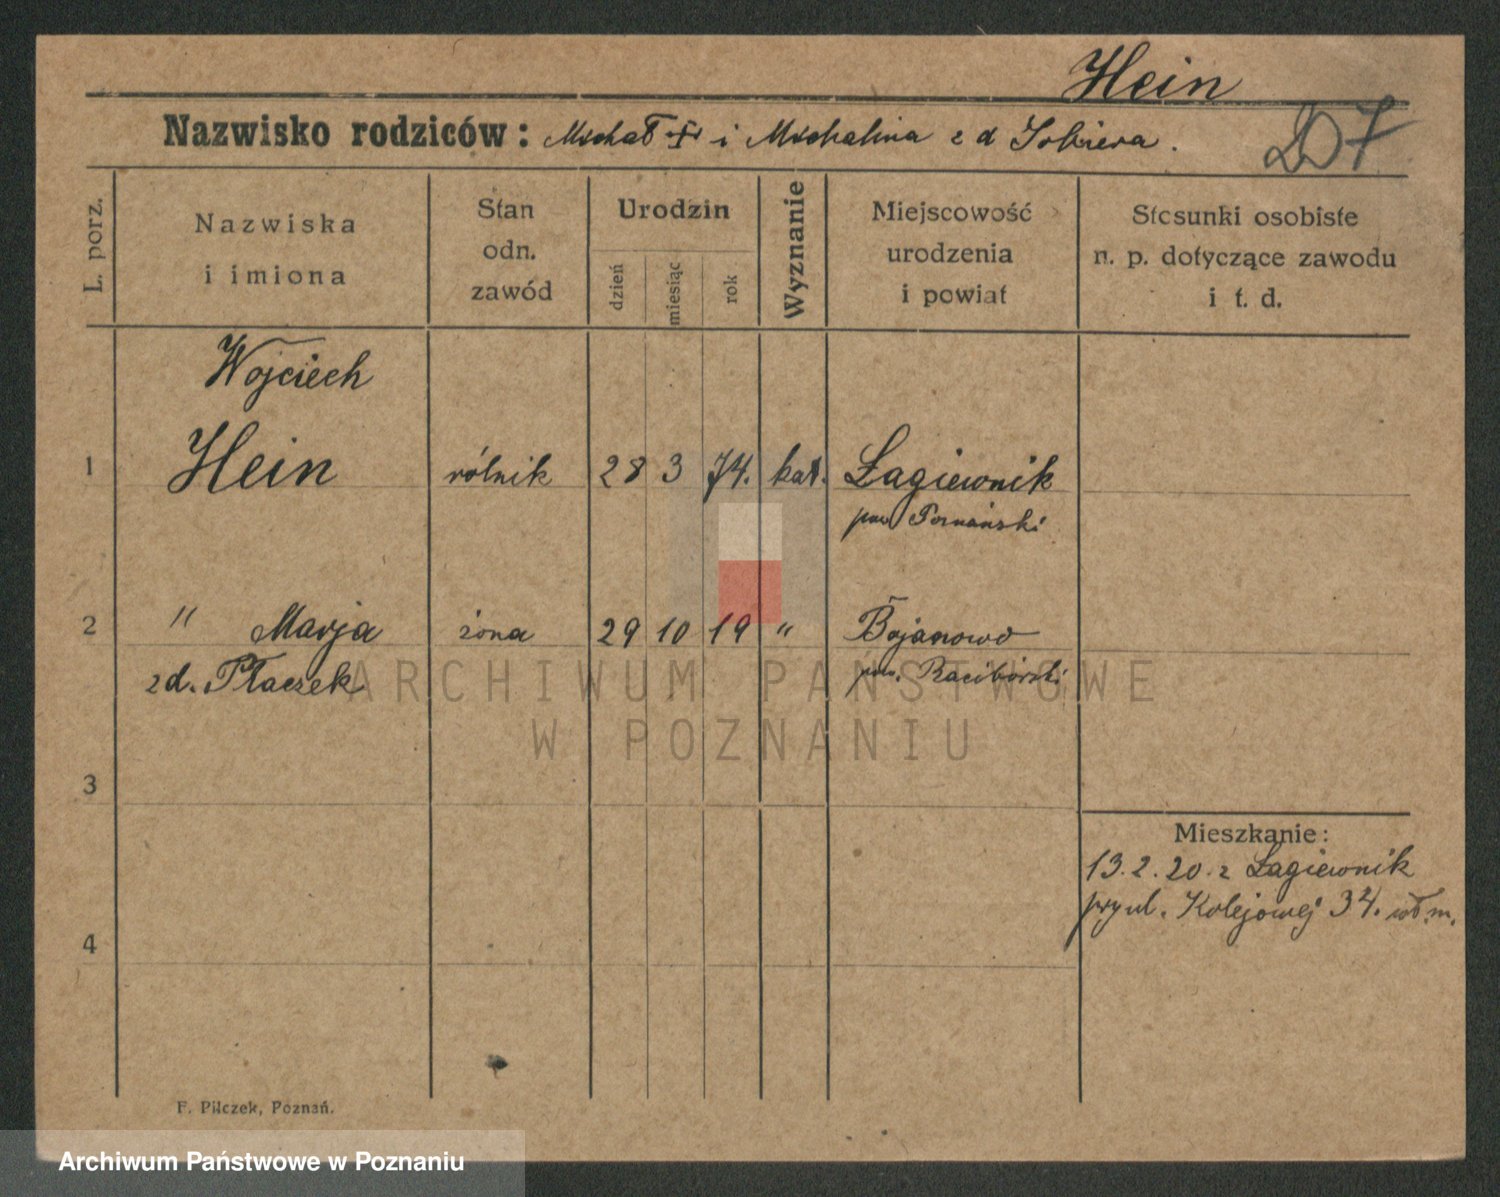 Hein
Nazwisko rodziców: Michał + i Michalina z d Sobiera.
D7
L. porz.
Nazwiska
i imiona
Stan
odn.
zawód
Urodzin
dzień
miesiąc
rok
Wyznanie
Miejscowość
urodzenia
i powiat
Stosunki osobiste
n. p. dotyczące zawodu
i t. d.
Wojciech
1 Hein rólnik 28 3 74. kat. Łagiewnik
pow Poznański
2 " Marja żona 29 10 19 " Bojanowo
zd. Płaczek pow. Raciborski
ARCHIWUM PAŃSTWOWE
W POZNANIU
3
Mieszkanie:
13.2.20. z Łagiewnik
przy ul. Kolejowej 34. wł. m.
4
F. Pilczek, Poznań.
Archiwum Państwowe w Poznaniu